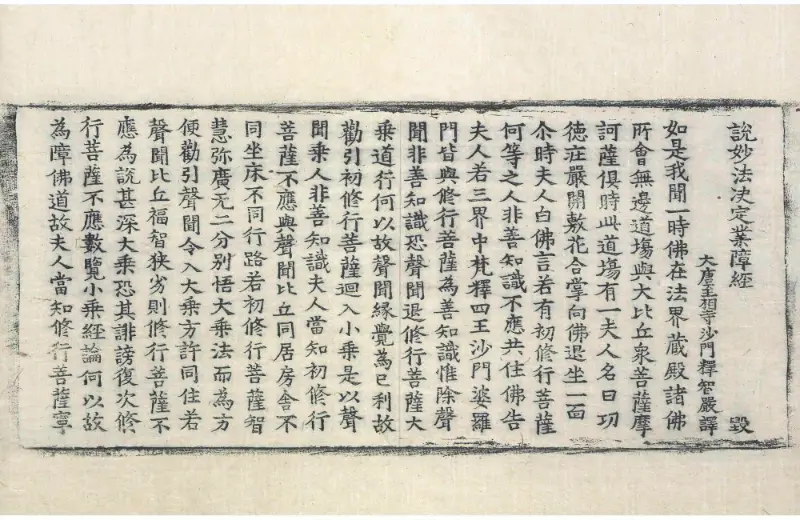 說妙法决定業障經　毀
大唐至相寺沙門釋智嚴譯
如是我聞一時佛在法界藏殿諸佛
所會無邊道塲與大比丘衆菩薩摩
訶薩俱時此道塲有一夫人名曰功
德莊嚴開敷花合掌向佛退坐一面
尒時夫人白佛言若有初修行菩薩
何等之人非善知識不應共住佛告
夫人若三界中梵釋四王沙門婆羅
門皆與修行菩薩為善知識惟除聲
聞非善知識恐聲聞退修行菩薩大
乘道行何以故聲聞緣覺為已利故
勸引初修行菩薩迴入小乘是以聲
聞乘人非善知識夫人當知初修行
菩薩不應與聲聞比丘同居房舍不
同坐床不同行路若初修行菩薩智
慧弥廣无二分別悟大乘法而為方
便勸引聲聞令入大乘方許同住若
聲聞比丘福智狹劣則修行菩薩不
應為說甚深大乘恐其誹謗復次修
行菩薩不應數覽小乘經論何以故
為障佛道故夫人當知修行菩薩寧